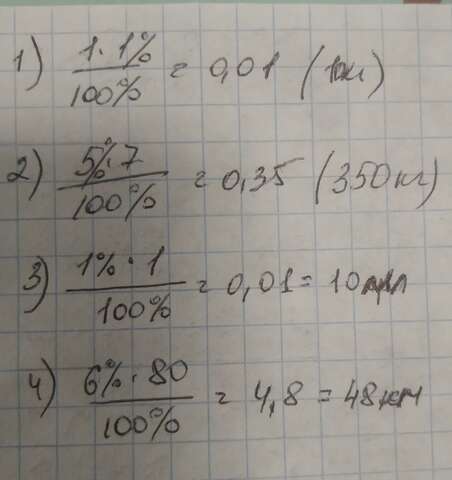 1) 1·1% / 100% = 0,01 (10кг)
2) 5%·7 / 100% = 0,35 (350кг)
3) 1%·1 / 100% = 0,01 = 10мл
4) 6%·80 / 100% = 4,8 = 48км